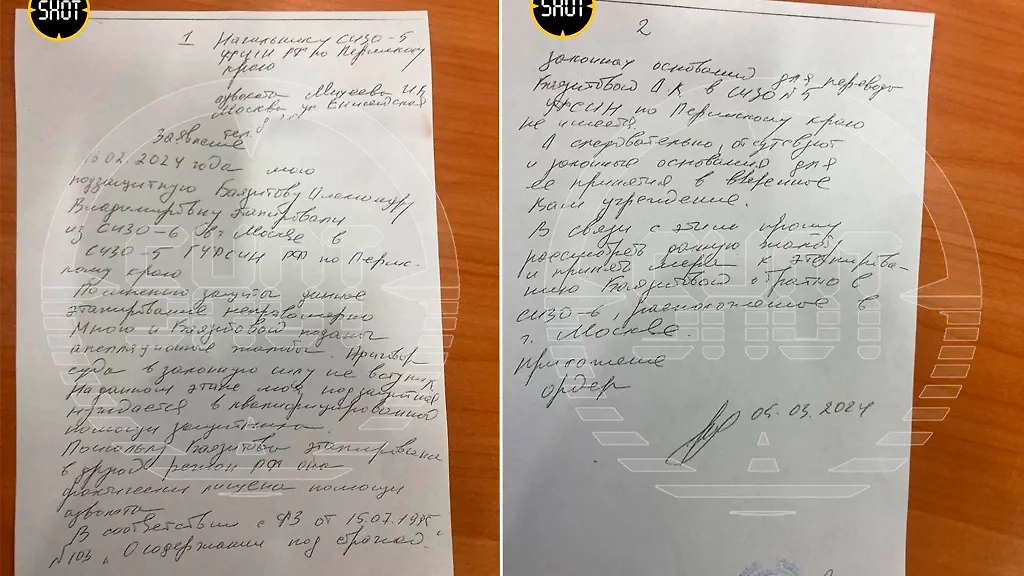 SHOT
1 Начальнику СИЗО-5
ФСИН РФ по Пермскому
краю
адвоката Михеева
Москва ул. Енисейская
тел.
Заявление
02.2024 года мою
подзащитную Баязитову Александру
Владимировну этапировали
из СИЗО-6 г. Москве в
СИЗО-5 ГУФСИН РФ по Перм-
скому краю
По мнению защиты данное
этапирование неправомерно
Мною и Баязитовой поданы
апелляционные жалобы. Приговор
суда в законную силу не вступил
На данном этапе моя подзащитная
нуждается в квалифицированной
помощи защитника.
Поскольку Баязитова этапирована
в другой регион РФ она
фактически лишена помощи
адвоката
В соответствии с ФЗ от 15.07.1995
№103 „О содержании под стражей"
SHOT
2
законных оснований для перевода
Баязитовой А.В. в СИЗО №5
УФСИН по Пермскому краю
не имеется
А следовательно, отсутствуют
и законные основания для
ее принятия в вверенное
Вам учреждение.
В связи с этим прошу
рассмотреть данную жалобу
и принять меры к этапирова-
нию Баязитовой обратно в
СИЗО-6, расположенное в
г. Москве.
Приложение
ордер
05.03.2024